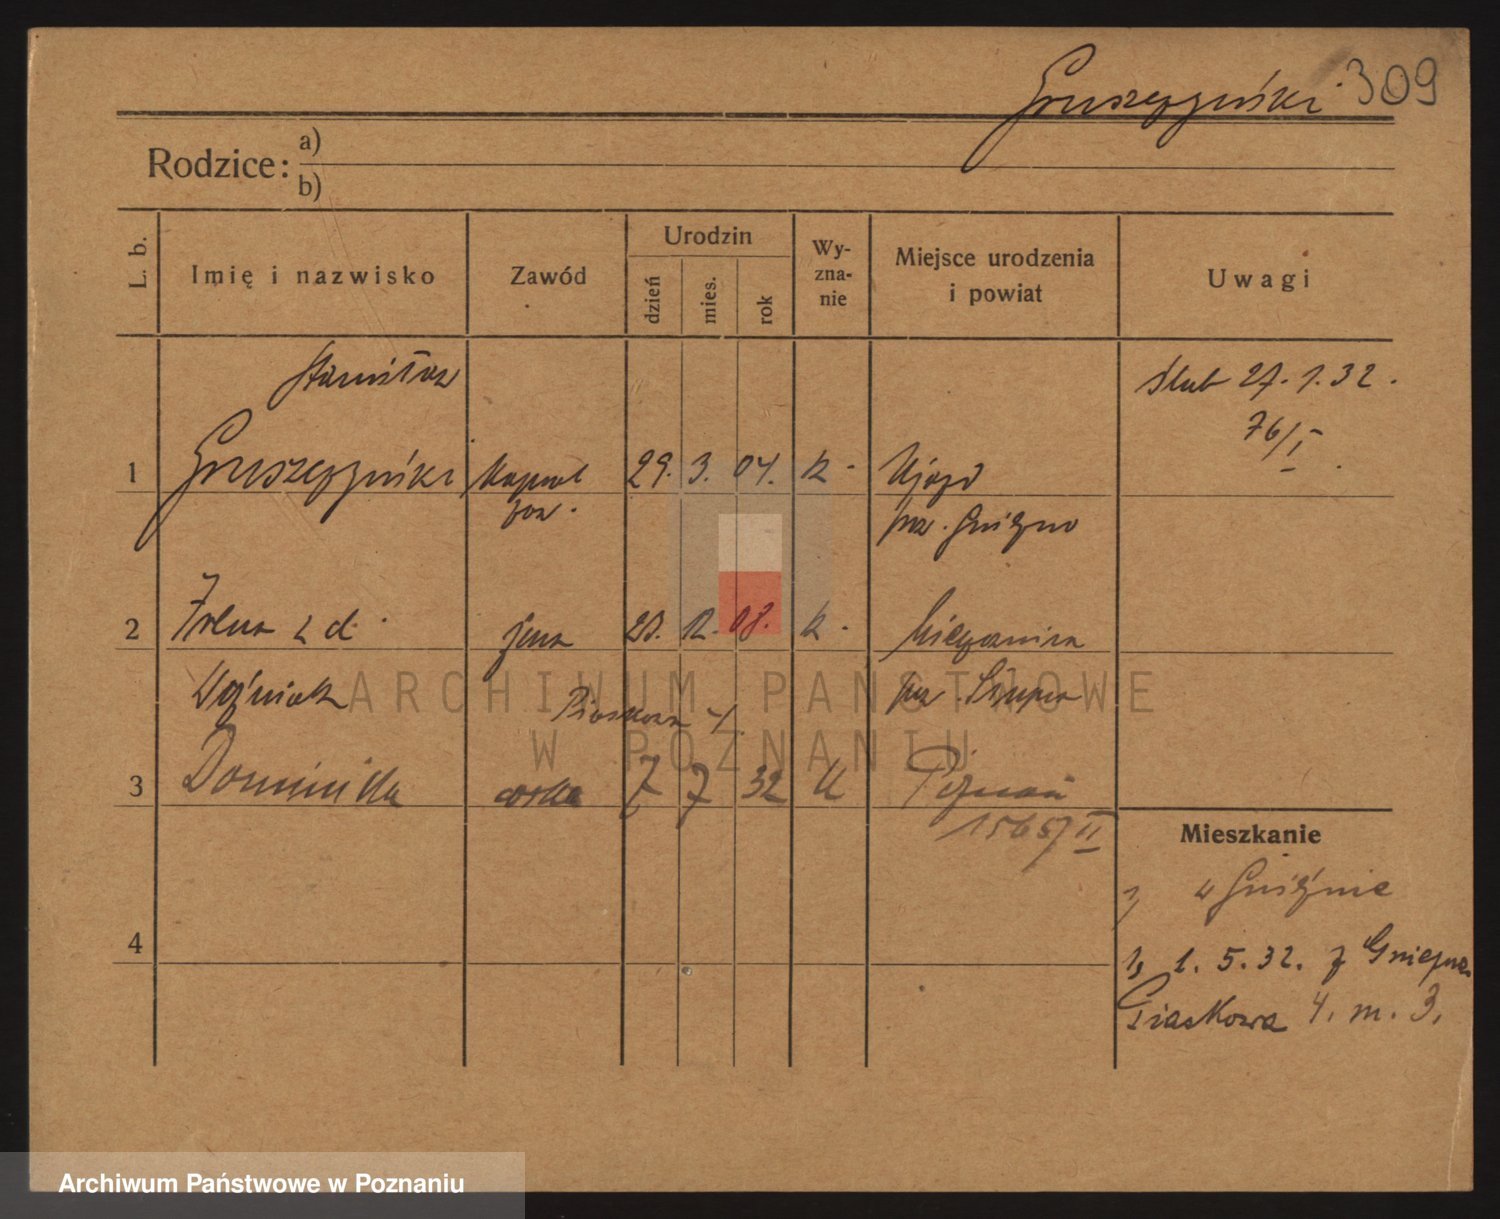 Gruszczyński 309
Rodzice: a)
b)
L. b.
Imię i nazwisko
Zawód
Urodzin
dzień
mies.
rok
Wy-
zna-
nie
Miejsce urodzenia
i powiat
Uwagi
Stanisław
Ślub 27.1.32.
76/I
1 Gruszczyński Kapral 29. 3. 04. k. Ujazd
zaw. pow. Gniezno
2 Irena z d. żona 23. 12. 08. k.
Woźniak pow.
Piaskowa 4.
3 Dominika córka 7 7 32 k Poznań
1565/II
Mieszkanie
w Gnieźnie
4
1, 1. 5. 32. z Gniezna
Piaskowa 4. m. 3.
ARCHIWUM PAŃSTWOWE
W POZNANIU
Archiwum Państwowe w Poznaniu